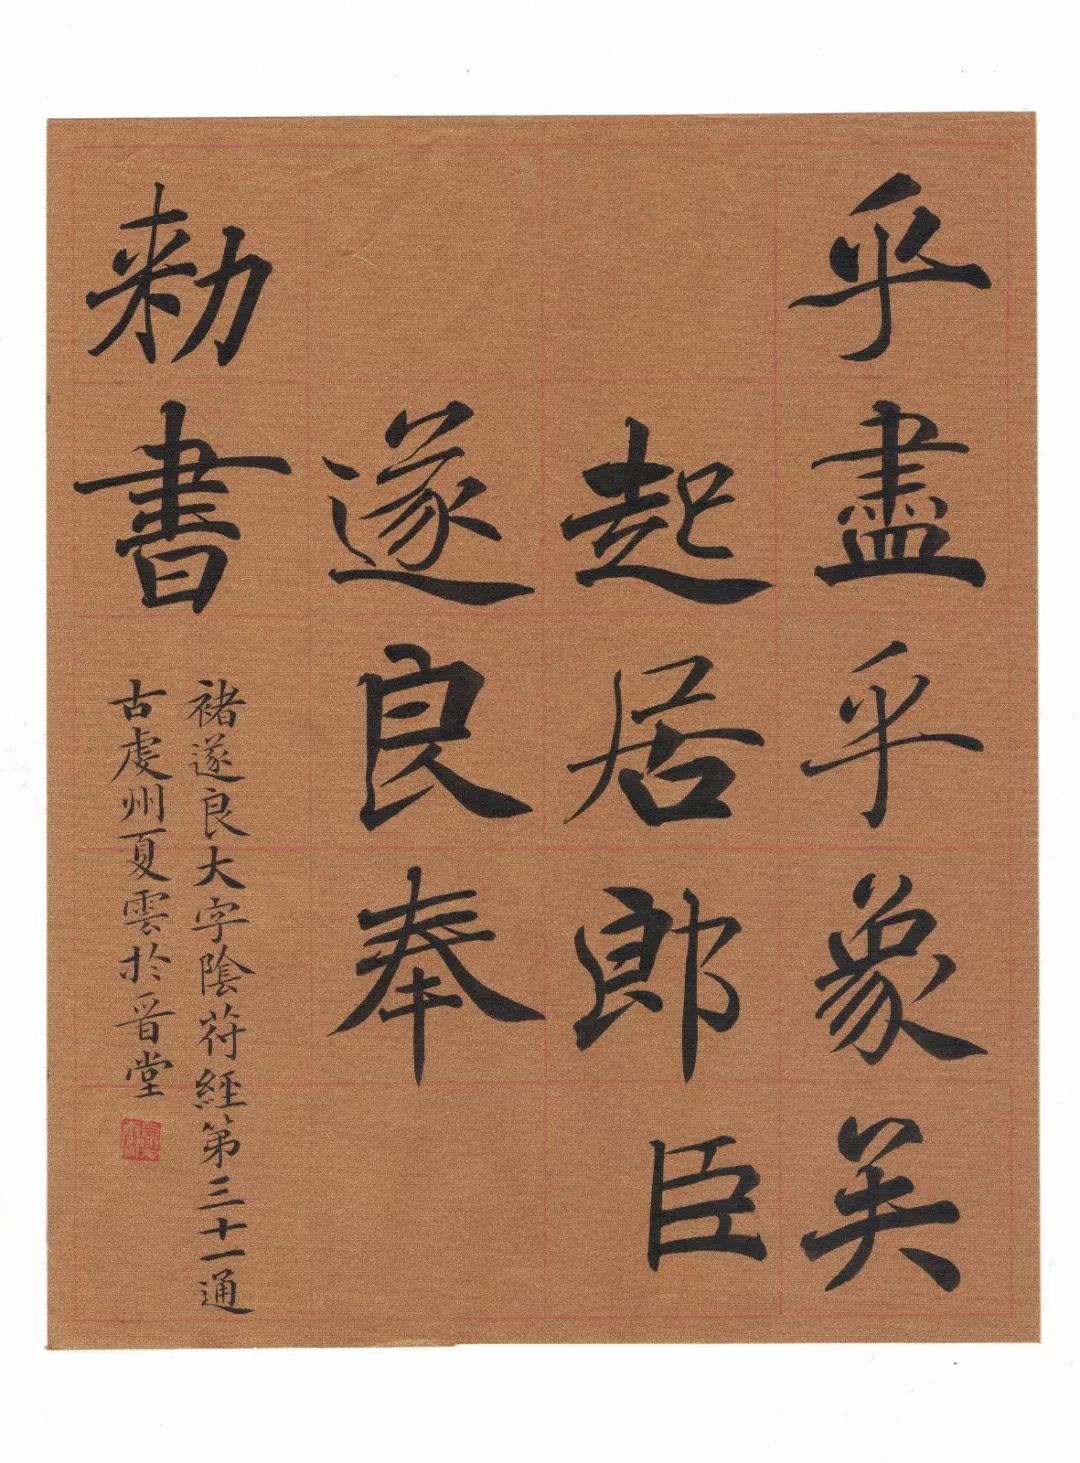 乎盡乎象矣
起居郎臣
遂良奉
勑書
褚遂良大字陰符經第三十一通
古虔州夏雲於晋堂